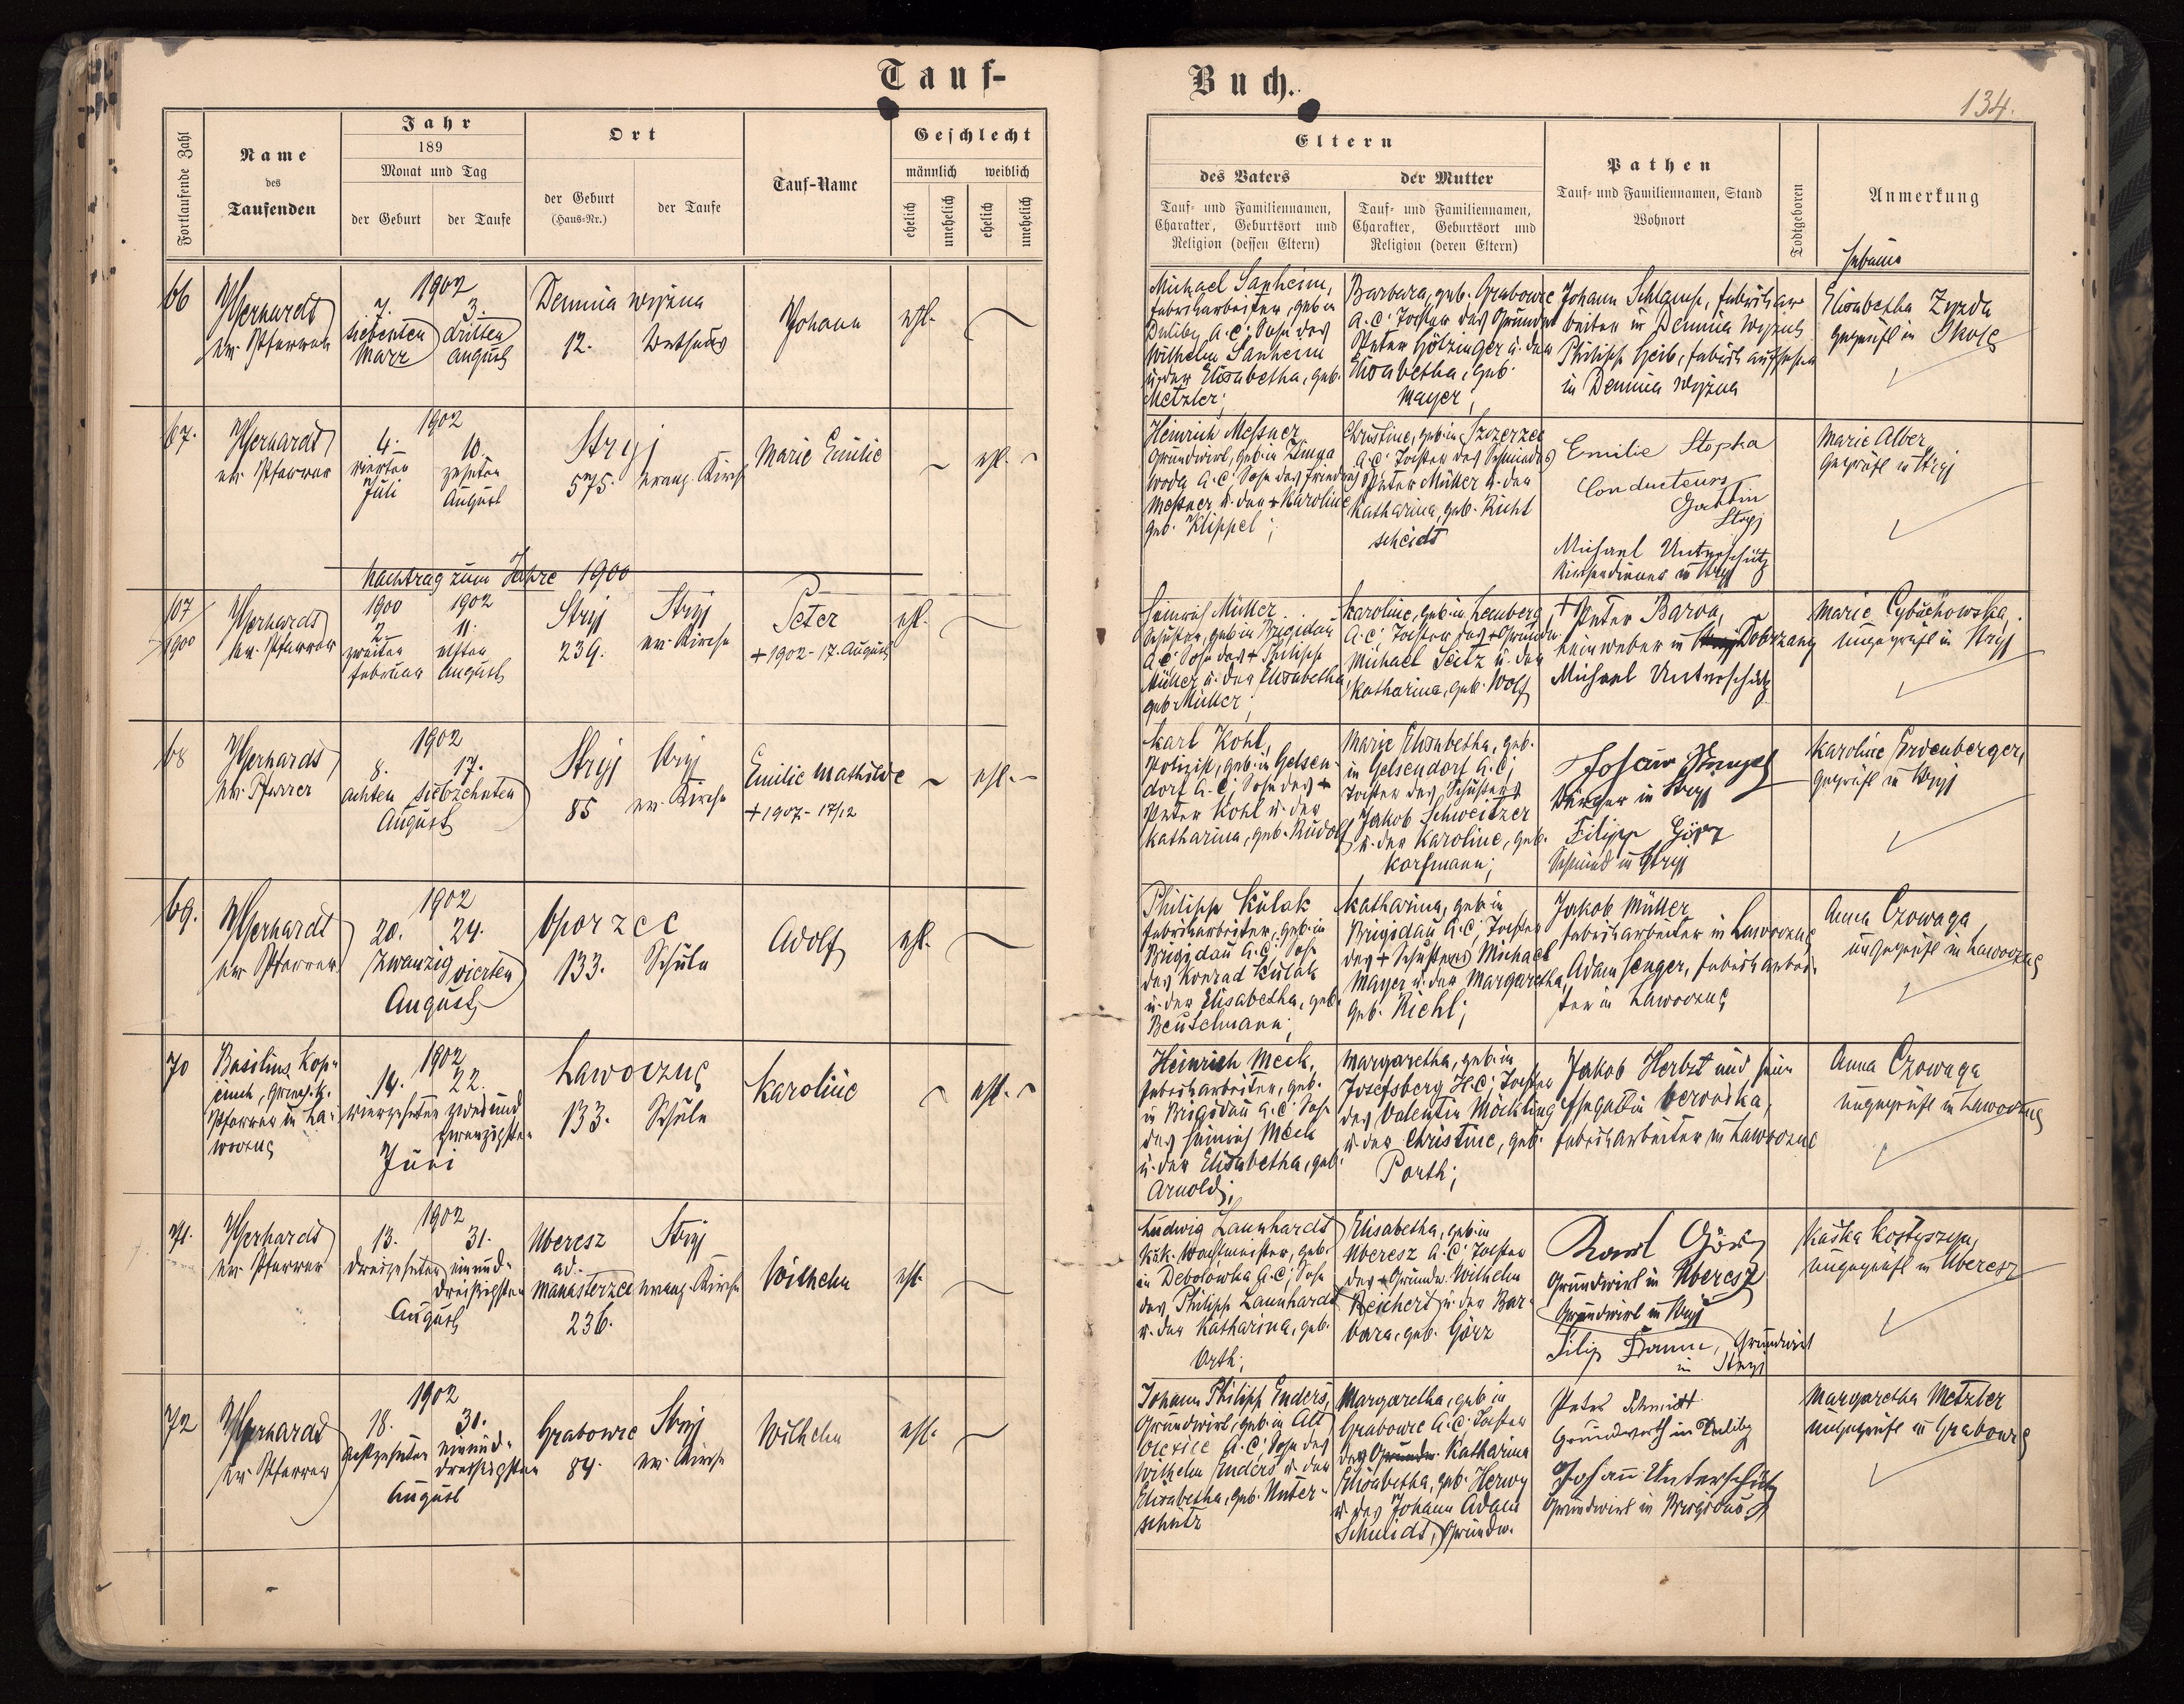 Tauf-
Buch.
134.
Fortlaufende Zahl
Name
des
Taufenden
Jahr
189
Monat und Tag
der Geburt
der Taufe
Ort
der Geburt
(Haus-Nr.)
der Taufe
Tauf-Name
Geschlecht
männlich
weiblich
ehelich
unehelich
ehelich
unehelich
Eltern
des Vaters
Tauf- und Familiennamen,
Charakter, Geburtsort und
Religion (dessen Eltern)
der Mutter
Tauf- und Familiennamen,
Charakter, Geburtsort und
Religion (deren Eltern)
Pathen
Tauf- und Familiennamen, Stand
Wohnort
Todtgeboren
Anmerkung
Hebamme
66
ev. Pfarrer
1902
7.
siebenten
März
3.
dritten
August
Demnia wyżna
12.
Bethaus
Johann
ehl.
Michael Sanheim,
Fabriksarbeiter, geb. in
Duliby A.C; Sohn des
Wilhelm Sanheim
u. der Elisabetha, geb.
Metzler;
Barbara, geb. Grabowce
A.C; Tochter des
Peter Hölzinger u. der
Elisabetha, geb.
Mayer;
Johann Schlamp, Fabriksar-
beiter in Demnia wyżna
Philipp Heib, Fabriksaufseher
in Demnia wyżna
Elisabetha Zyzda
geprüft in Skole
67.
ev. Pfarrer
1902
4.
vierten
Juli
10.
zehnten
August
Stryj
575.
evang. Kirche
Marie Emilie
ehl.
Heinrich Meßner
Grundwirt, geb. in Zimna
woda A.C; Sohn des Friedrich
Meßner u. der + Karoline
geb. Klippel;
Christine, geb. in Szczerzec
A.C; Tochter des Schmiedes
Peter Müller u. der
Katharina, geb. Richt
scheidt
Emilie Stopka
Conducteurs
Gattin
Stryj
Michael Unterschütz
Kirchendiener in Stryj
Marie Alber
geprüft in Stryj
Nachtrag zum Jahre 1900
107
1900
ev. Pfarrer
1900
2.
zweiten
Februar
1902
11.
elften
August
Stryj
239.
Stryj
ev. Kirche
Peter
+ 1902 - 17. August
ehl.
Heinrich Müller
Schuster, geb. in Brigidau
A.C; Sohn des + Philipp
Müller u. der Elisabetha,
geb. Müller;
Karoline, geb. in Lemberg
A.C; Tochter des +
Michael Seitz u. der
Katharina, geb. Wolf
+ Peter Baron,
Leinweber in Dobrzany
Michael Unterschütz
Marie Cybuchowska,
ungeprüft in Stryj
68
ev. Pfarrer
1902
8.
achten
17.
siebzehnten
August
Stryj
85
Stryj
ev. Kirche
Emilie Mathilde
+ 1907 - 17/12
ehl.
Karl Kohl,
Polizist, geb. in Gelsen-
dorf A.C; Sohn des +
Peter Kohl u. der
Katharina, geb. Rudolf
Marie Elisabetha, geb.
in Gelsendorf A.C;
Tochter des Schusters
Jakob Schweitzer
u. der Karoline, geb.
Korfmann;
Bürger in Stryj
Filipp Görz
Schmied in Stryj
Karoline Fordenberger,
geprüft in Stryj
69.
ev. Pfarrer
1902
20.
zwanzig
24.
vierten
August
Oporzec
133.
Schule
Adolf
ehl.
Philipp Kulak
Fabriksarbeiter, geb. in
Brigidau A.C; Sohn
des Konrad Kulak
u. der Elisabetha, geb.
Beutelmann;
Katharina, geb. in
Brigidau A.C; Tochter
des + Schusters Michael
Mayer u. der Margaretha,
geb. Riehl;
Jakob Müller
Fabriksarbeiter in Lawoczne
Adam Senger, Fabriksarbei-
ter in Lawoczne
Anna Czowaga
ungeprüft in Lawoczne
70
Pfarrer in La-
woczne
1902
14.
vierzehnten
22.
zweiund
zwanzigsten
Juni
Lawoczne
133.
Schule
Karoline
ehl.
Heinrich Meck,
Fabriksarbeiter, geb.
in Brigidau A.C; Sohn
des Heinrich Meck
u. der Elisabetha, geb.
Arnold;
Margaretha, geb. in
Josefsberg H.C; Tochter
des Valentin Möckling
u. der Christine, geb.
Porth;
Jakob Herbst und seine
Ehegattin
Fabriksarbeiter in Lawoczne
Anna Czowaga
ungeprüft in Lawoczne
71.
ev. Pfarrer
1902
13.
dreizehnten
31.
einund-
dreißigsten
August
Uberesz
ad.
Manasterzec
236.
Stryj
evang. Kirche
Wilhelm
ehl.
Ludwig Launhardt
k.u.k. Wachtmeister, geb.
in Debolówka A.C; Sohn
des Philipp Launhardt
u. der Katharina, geb.
Orth;
Elisabetha, geb. in
Uberesz A.C; Tochter
des + Grundw. Wilhelm
Reichert u. der Bar-
bara, geb. Görz
Karl Görz
Grundwirt in Uberesz
Grundwirt in Stryj
Grundwirt
in Stryj
ungeprüft in Uberesz
72
ev. Pfarrer
1902
18.
achtzehnten
31.
einund-
dreißigsten
August
Grabowce
84.
Stryj
ev. Kirche
Wilhelm
ehl.
Johann Philipp Enders,
Grundwirt, geb. in Alt
Oleksice A.C; Sohn des
Wilhelm Enders u. der
Elisabetha, geb. Unter-
schütz
Margaretha, geb. in
Grabowce A.C; Tochter
der Katharina
Elisabetha, geb. Herwy
u. des Johann Adam
Schmidt, Grundw.
Peter Schmidt
Grundwirth in Duliby
Johann Unterschütz
Grundwirt in Brigidau
Margaretha Metzler
ungeprüft in Grabowce